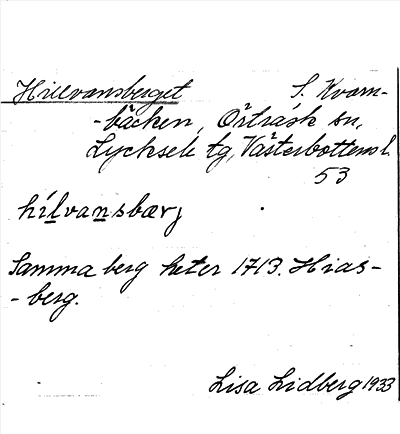 Hillvansberget S. Kvarn-
-bäcken, Örträsk sn,
Lycksele tg, Västerbottens l.
53
hílvansbærj
Samma berg heter 1713. Hias-
-berg.
Lisa Lidberg 1933